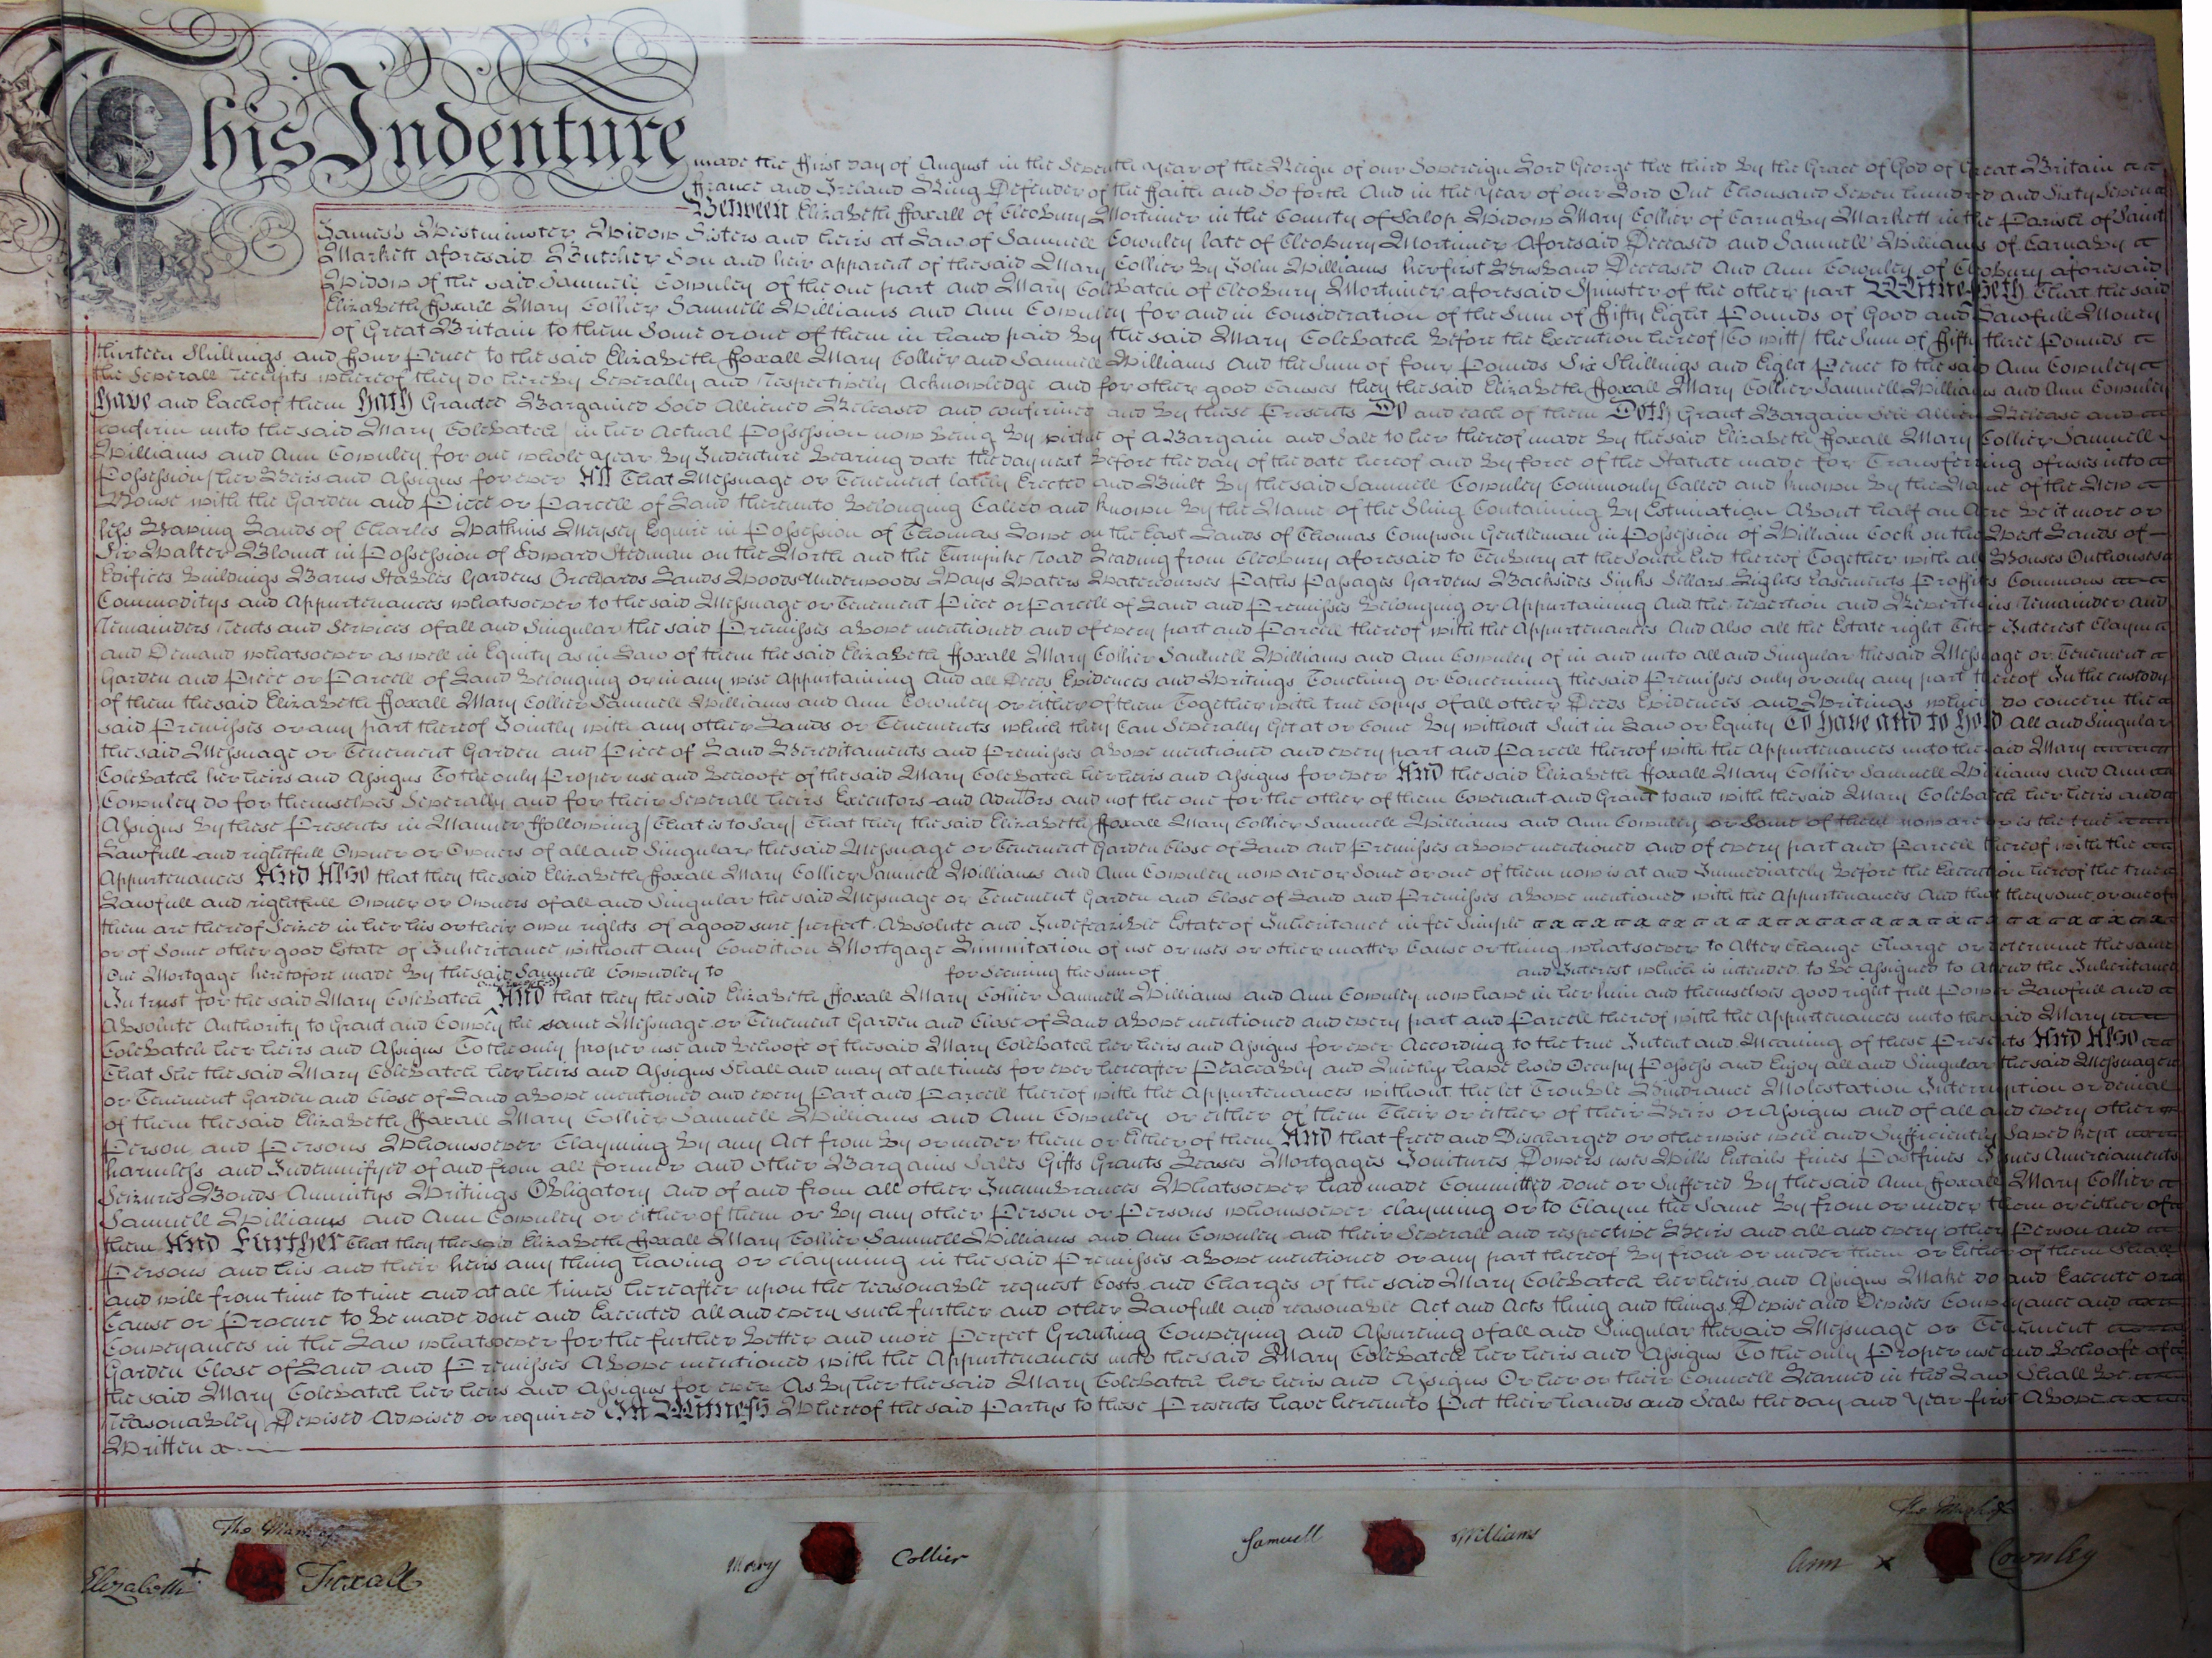 This Indenture made the ffirst day of August in the Seventh year of the Reign of our Sovereign Lord George the third By the Grace of God of Great Britain
ffrance and Ireland King Defender of the ffaith and So forth And in the year of our Lord One Thousand Seven hundred and Sixty Seven
Between Elizabeth ffoxall of Cleobury Mortimer in the County of Salop Widow Mary Collier of Carnaby Markett in the Parish of Saint
James's Westminster Widow Sisters and heirs at Law of Samuell Cownley late of Cleobury Mortimer Aforesaid Deceased and Samuell Williams of Carnaby
Markett aforesaid Butcher Son and heir apparent of the said Mary Collier By John Williams her first Husband Deceased And Ann Cownley of Cleobury aforesaid
Widow of the said Samuell Cownley of the one part and Mary Colebatch of Cleobury Mortimer aforesaid Spinster of the other part Witnesseth That the said
Elizabeth ffoxall Mary Collier Samuell Williams and Ann Cownley for and in Consideration of the Sum of ffifty Eight Pounds of Good and Lawfull Money
of Great Britain to them Some or one of them in hand paid By the said Mary Colebatch Before the Execution hereof (To witt) the Sum of ffifty three Pounds
thirteen Shillings and ffour Pence to the said Elizabeth ffoxall Mary Collier and Samuell Williams And the Sum of four Pounds Six Shillings and Eight Pence to the said Ann Cownley
the Severall receipts whereof they do hereby Severally and respectively Acknowledge and for other good Causes they the said Elizabeth ffoxall Mary Collier Samuell Williams and Ann Cownley
Have and Each of them Hath Granted Bargained Sold Alliened Released and confirmed and By these Presents Do and each of them Doth Grant Bargain Sell Allien Release and
confirm unto the said Mary Colebatch (in her Actual Possession now Being By virtue of A Bargain and Sale to her thereof made By the said Elizabeth ffoxall Mary Collier Samuell
Williams and Ann Cownley for one whole year By Indenture Bearing date the day next Before the day of the date hereof and By force of the Statute made for Transferring of uses into
Possession) her Heirs and Assigns for ever All That Messuage or Tenement lately Erected and Built By the said Samuell Cownley Commonly Called and known By the Name of the New
House with the Garden and Piece or Parcell of Land thereunto Belonging Called and known By the Name of the Sling Containing By Estimation About half an Acre Be it more or
less Having Lands of Charles Wathins Meysey Esquire in Possession of Thomas Lowe on the East Lands of Thomas Compson Gentleman in Possession of William Cock on the West Lands of
Sir Walter Blount in Possession of Edward Stedman on the North and the Turnpike road Leading from Cleobury aforesaid to Tenbury at the South End thereof Together with all Houses Outhouses
Edifices Buildings Barns Stables Gardens Orchards Lands Woods Underwoods Ways Waters Watercourses Paths Passages Gardens Backsides Sinks Sellars Lights Easements Proffits Commons
Commoditys and Appurtenances whatsoever to the said Messuage or Tenement Piece or Parcell of Land and Premisses Belonging or Appurtaining And the reversion and Reversions remainder and
remainders rents and Services of all and Singular the said Premisses above mentioned and of every part and Parcell thereof with the Appurtenances And Also all the Estate right Title Interest Claym
and Demand whatsoever as well in Equity as in Law of them the said Elizabeth ffoxall Mary Collier Samuell Williams and Ann Cownley of in and unto all and Singular the said Messuage or Tenement
Garden and Piece or Parcell of Land Belonging or in any wise Appurtaining And all Deeds Evidences and Writings Touching or Concerning the said Premisses only or only any part thereof In the custody
of them the said Elizabeth ffoxall Mary Collier Samuell Williams and Ann Cownley or either of them Together with true Copys of all other Deeds Evidences and Writings which do concern the
said Premisses or any part thereof Jointly with any other Lands or Tenements which they Can Severally Get at or Come By without Suit in Law or Equity To have and to hold all and Singular
the said Messuage or Tenement Garden and Piece of Land Hereditaments and Premisses above mentioned and every part and Parcell thereof with the Appurtenances unto the said Mary
Colebatch her heirs and Assigns To the only Proper use and Behoofe of the said Mary Colebatch her heirs and Assigns for ever And the said Elizabeth ffoxall Mary Collier Samuell Williams and Ann
Cownley do for themselves Severally and for their Severall heirs Executors and Admtors and not the one for the other of them Covenant and Grant to and with the said Mary Colebatch her heirs and
Assigns By these Presents in Manner ffollowing (That is to Say) That they the said Elizabeth ffoxall Mary Collier Samuell Williams and Ann Cownley or Some of them now are or is the true
Lawfull and rightfull Owner or Owners of all and Singular the said Messuage or Tenement Garden Close of Land and Premisses above mentioned and of every part and Parcell thereof with the
Appurtenances And Also that they the said Elizabeth ffoxall Mary Collier Samuell Williams and Ann Cownley now are or Some or one of them now is at and Immediately Before the Execution hereof the true
Lawfull and rightfull Owner or Owners of all and Singular the said Messuage or Tenement Garden and Close of Land and Premisses above mentioned with the Appurtenances And that they some or one of
them are thereof Seized in her his or their own rights of a good sure perfect Absolute and Indefeazible Estate of Inheritance in fee Simple
or of Some other good Estate of Inheritance without Any Condition Mortgage Limmitation of use or uses or other matter Cause or thing whatsoever to Alter Change Charge or determine the same
One Mortgage heretofore made By the said Samuell Cownley to for Securing the Sum of and Interest which is intended to Be Assigned to Attend the Inheritance
In trust for the said Mary Colebatch And that they the said Elizabeth ffoxall Mary Collier Samuell Williams and Ann Cownley now have in her him and themselves good right full Power Lawfull and
Absolute Authority to Grant and Convey the same Messuage or Tenement Garden and Close of Land above mentioned and every part and Parcell thereof with the Appurtenances unto the said Mary
Colebatch her heirs and Assigns To the only proper use and Behoofe of the said Mary Colebatch her heirs and Assigns for ever According to the true Intent and Meaning of these Presents And Also
That She the said Mary Colebatch her heirs and Assigns Shall and may at all times for ever hereafter Peaceably and Quietly have hold Occupy Possess and Enjoy all and Singular the said Messuage
or Tenement Garden and Close of Land above mentioned and every Part and Parcell thereof with the Appurtenances without the let Trouble Hindrance Molestation Interruption or denial
of them the said Elizabeth ffoxall Mary Collier Samuell Williams and Ann Cownley or either of them Their or either of their Heirs or Assigns and of all and every other
Person and Persons Whomsoever Clayming By any Act from By or under them or Either of them And that freed and Discharged or otherwise well and Sufficiently Saved kept
harmless and Indemnifyed of and from all former and other Bargains Sales Gifts Grants Leases Mortgages Joinitures Dowers uses Wills Entails fines Postfines Issues Amerciaments
Seizures Bonds Annuitys Writings Obligatory And of and from all other Incumbrances Whatsoever had made Committed done or Suffered By the said Ann ffoxall Mary Collier
Samuell Williams and Ann Cownley or either of them or By any other Person or Persons whomsoever clayming or to Claym the Same By from or under them or either of
them And Further That they the said Elizabeth ffoxall Mary Collier Samuell Williams and Ann Cownley and their Severall and respective Heirs and all and every other Person and
Persons and his and their heirs any thing having or clayming in the said Premisses above mentioned or any part thereof By from or under them or Either of them Shall
and will from time to time and at all times hereafter upon the reasonable request Costs and Charges of the said Mary Colebatch her heirs and Assigns Make do and Execute or
Cause or Procure to be made done and Executed all and every such further and other Lawfull and reasonable Act and Acts thing and things Devise and Devises Conveyance and
Conveyances in the Law whatsoever for the further Better and more Perfect Granting Conveying and Assureing of all and Singular the said Messuage or Tenement
Garden Close of Land and Premisses Above mentioned with the Appurtenances unto the said Mary Colebatch her heirs and Assigns To the only Proper use and Behoofe of
the said Mary Colebatch her heirs and Assigns for ever As By her the said Mary Colebatch her heirs and Assigns Or her or their Councell Learned in the Law Shall Be
reasonabley Devised Advised or required In Witness Whereof the said Partys to these Presents have hereunto Put their hands and Seals the day and Year first Above
Written
The Mark of
Elizabeth + Foxall
Mary Collier
Samuell Williams
The Mark of
Ann x Cownley